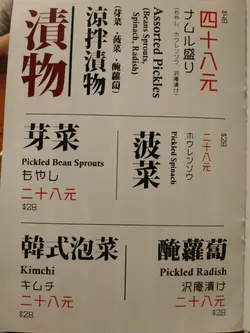 漬物
涼拌漬物
(芽菜 · 菠菜 · 醃蘿蔔)
Assorted Pickles
(Beans Sprouts,
Spinach, Radish)
ナムル盛り
(もやし、ホウレンソウ、沢庵漬け)
四十八元
$48
芽菜
Pickled Bean Sprouts
もやし
二十八元
$28
菠菜
Pickled Spinach
ホウレンソウ
二十八元
$28
韓式泡菜
Kimchi
キムチ
二十八元
$28
醃蘿蔔
Pickled Radish
沢庵漬け
二十八元
$28